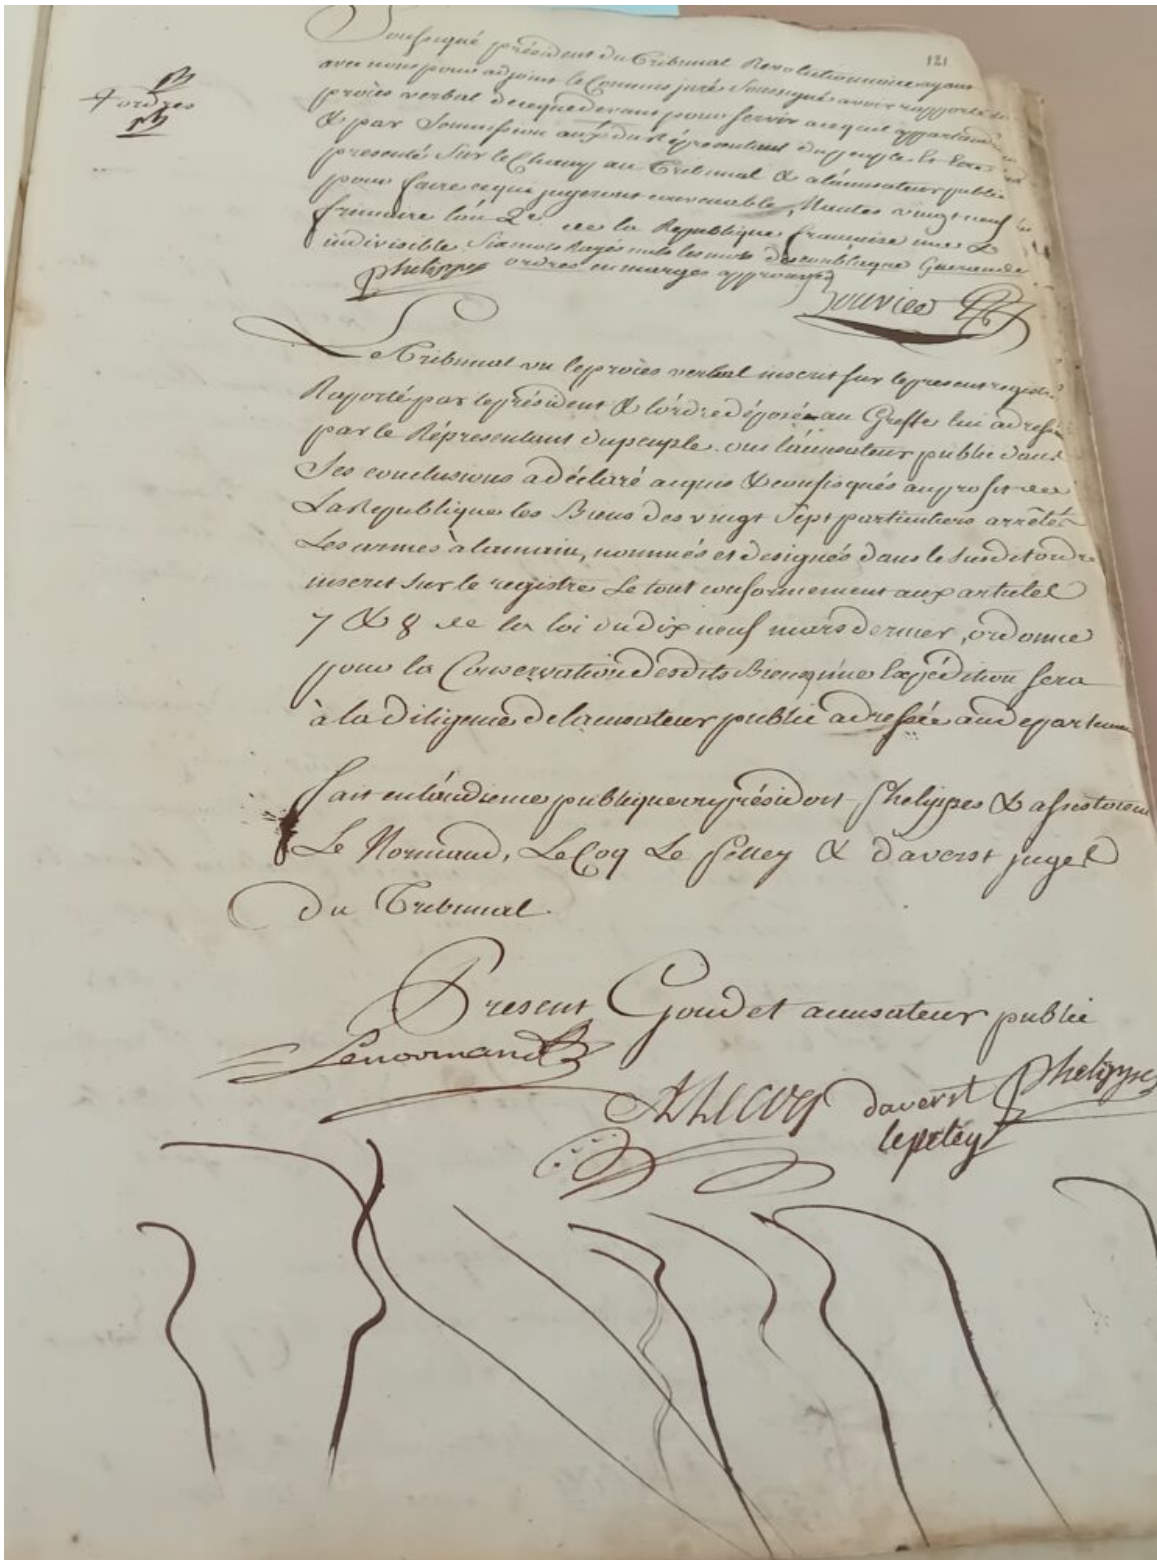 121
Soussigné président du Tribunal Revolutionnaire ayant
avec nous pour adjoint le Commis juré Soussigné avoir rapporté le
procès verbal decequedevant pour servir acequil appartiendra
& par Soummission aux du Représentant du peuple
presenté Sur le Champ au Tribunal & a l'accusateur public
pour faire cequi jugeront convenable, Nantes vingt neuf
frimaire l'an 2e. de la Republique francaise une &
indivisible Six mots Rayés nuls les mots Guerande
ordres en marges approuvés
+ ordres
Phelippes
Bouvier
Le Tribunal vu leprocès verbal inscrit sur lepresent registre
Raporté par leprésident & l'ordre déposé au Greffe lui adressé
par le Répresentant dupeuple. oui l'accusateur public dans
Ses conclusions a déclaré acquis & confisqués auprofit de
La Republique les Biens des vingt Sept particuliers arrêtés
Les armes à lamain, nommés et designés dans le Susdit ordre
inscrit Sur le registre Le tout conformement aux articles
7 & 8 de la loi du dix neuf mars dernier, ordonne
pour la Conservation desdits Biens qu'une Expédition sera
à la diligence de lacusateur public adressée au departement
fait en l'audience publique ou présidoit Phelippes & assistoient
Le Normand, LeCoq Le Pelley & Daverst juges
Du Tribunal.
Present Goudet accusateur public
Lenormand
Lecoq daverst Phelippes
lepeley